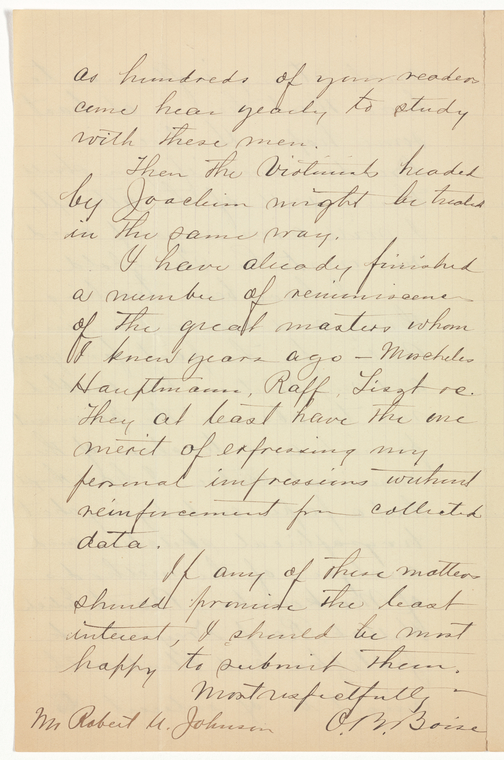 as hundreds of your readers
come hear yearly to study
with these men.
Then the Violinists headed
by Joachim might be treated
in the same way.
I have already finished
a number of reminiscences
of the great masters whom
I knew years ago – Moscheles
Hauptmann, Raff, Liszt &c.
They at least have the one
merit of expressing my
personal impressions without
reinforcement from collected
data.
If any of these matters
should promise the least
interest, I should be most
happy to submit them.
Most respectfully
Mr Robert U. Johnson O. B. Boise